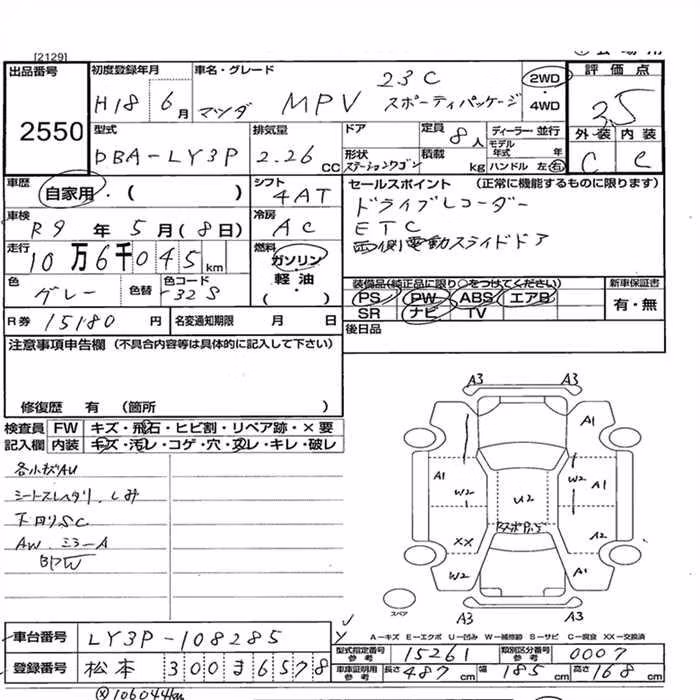 [2129]
出品番号 2550
初度登録年月 H18 6月
車名・グレード マツダ MPV 23C スポーティパッケージ
2WD・4WD
評価点 3.5
外装 C 内装 C
型式 DBA-LY3P
排気量 2.26 CC
ドア 形状 ステーションワゴン
定員 8人 積載 kg
ディーラー・並行 モデル年式 年
ハンドル 左 右
車歴 自家用・( )
シフト 4AT
車検 R9年 5月(8日)
冷房 AC
走行 10万6千045km
燃料 ガソリン・軽油・( )
色 グレー 色替 色コード 32S
セールスポイント (正常に機能するものに限ります)
ドライブレコーダー
ETC
両側電動スライドドア
装備品(純正品に限り○をつけてください) 新車保証書
PS PW ABS エアB 有・無
SR ナビ TV
R券 15180円 名変通知期限 月 日
後日品
注意事項申告欄 (不具合内容等は具体的に記入して下さい)
修復歴 有 (箇所 )
検査員 FW キズ・飛石・ヒビ割・リペア跡・×要
記入欄 内装 キズ・汚レ・コゲ・穴・スレ・キレ・破レ
各小キズAU
シートスレヘタリ、しみ
下回りSC
AW、ミラーA
A3 A3
A1
A1 W2 U2 W2 A1
XX A2
W2 A1
スペア A3 A3
A-キズ E-エクボ U-凹み W-補修跡 S-サビ C-腐食 XX-交換済
車台番号 LY3P-108285
型式指定番号 参考 15261 類別区分番号 参考 0007
登録番号 松本 300 ま 6578
車庫証明用 参考 長さ 487cm 幅 185cm 高さ 168cm
106044km